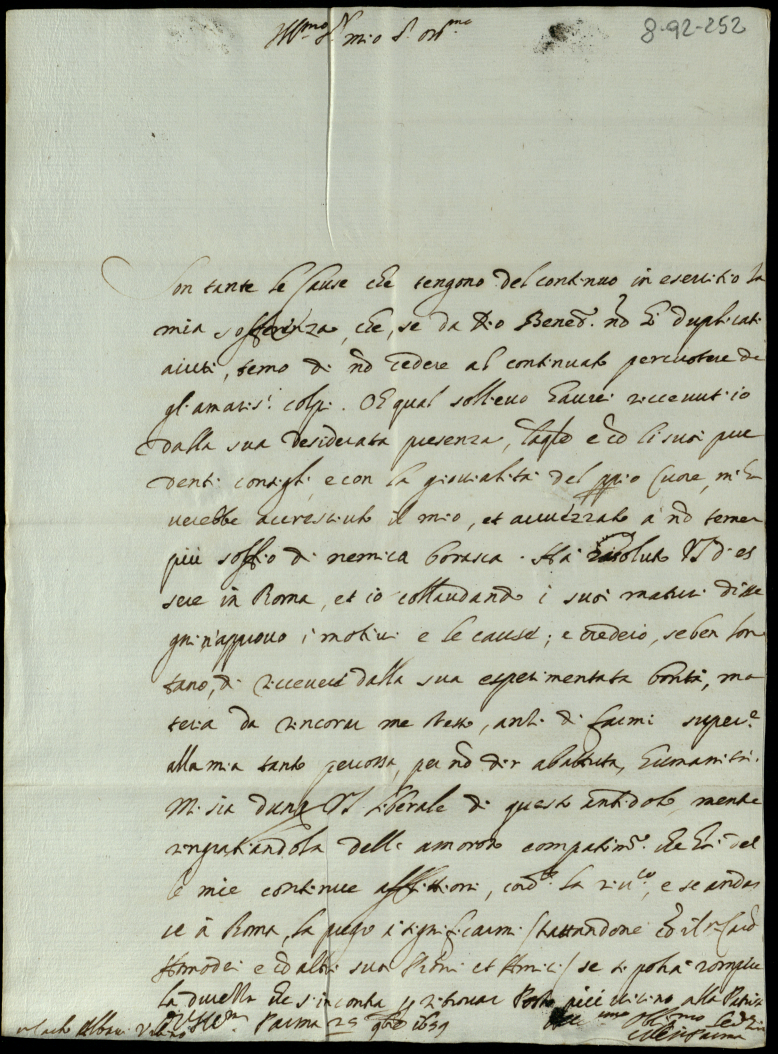 8-92-252
Ill.mo S.r mio S.r Oss.mo
Son tante le Cause che tengono del continuo in esercitio la
mia sofferenza, che, se da Dio Bened.o nō hò duplicati
aiuti, temo di nō cedere al continuato percuotere de
gli amaris.i colpi. O che qual sollievo haurei riccevuto io
dalla sua desiderata presenza, e cō li suoi pru
denti consigli, e con la giovialità del pp̄io Cuore, mi ha
verebbe accresciuto il mio, et avvezzato a nō temer
più soffio di nemica borasca. Hà risoluto VS d'es
sere in Roma, et io collaudando i suoi maturi disse
gni n'approvo i motivi e le cause; e crederò, se ben lon
tano, di riccever dalla sua esperimentata bontà, ma
teria da rincorar me stesso, anzi di farmi super.e
alla mia tanto percossa, per nō dir abattuta, humanità.
Mi sia dunq VS liberale di questo antidoto, mentre
ringratiandola dell' amoroso compatim.to che hà del
le mie continue afflittioni, la riv.co, e se andas
se à Roma, la prego à significarmi (trattandone cō il S.r Card
Homodei e cō altri suoi Pr̄oni et Amici) se si potrà romper
la durezza che s'incontra per ritrovar Posto più vicino alla Patria
Di VS Ill.ma Parma 25 9bre 1659